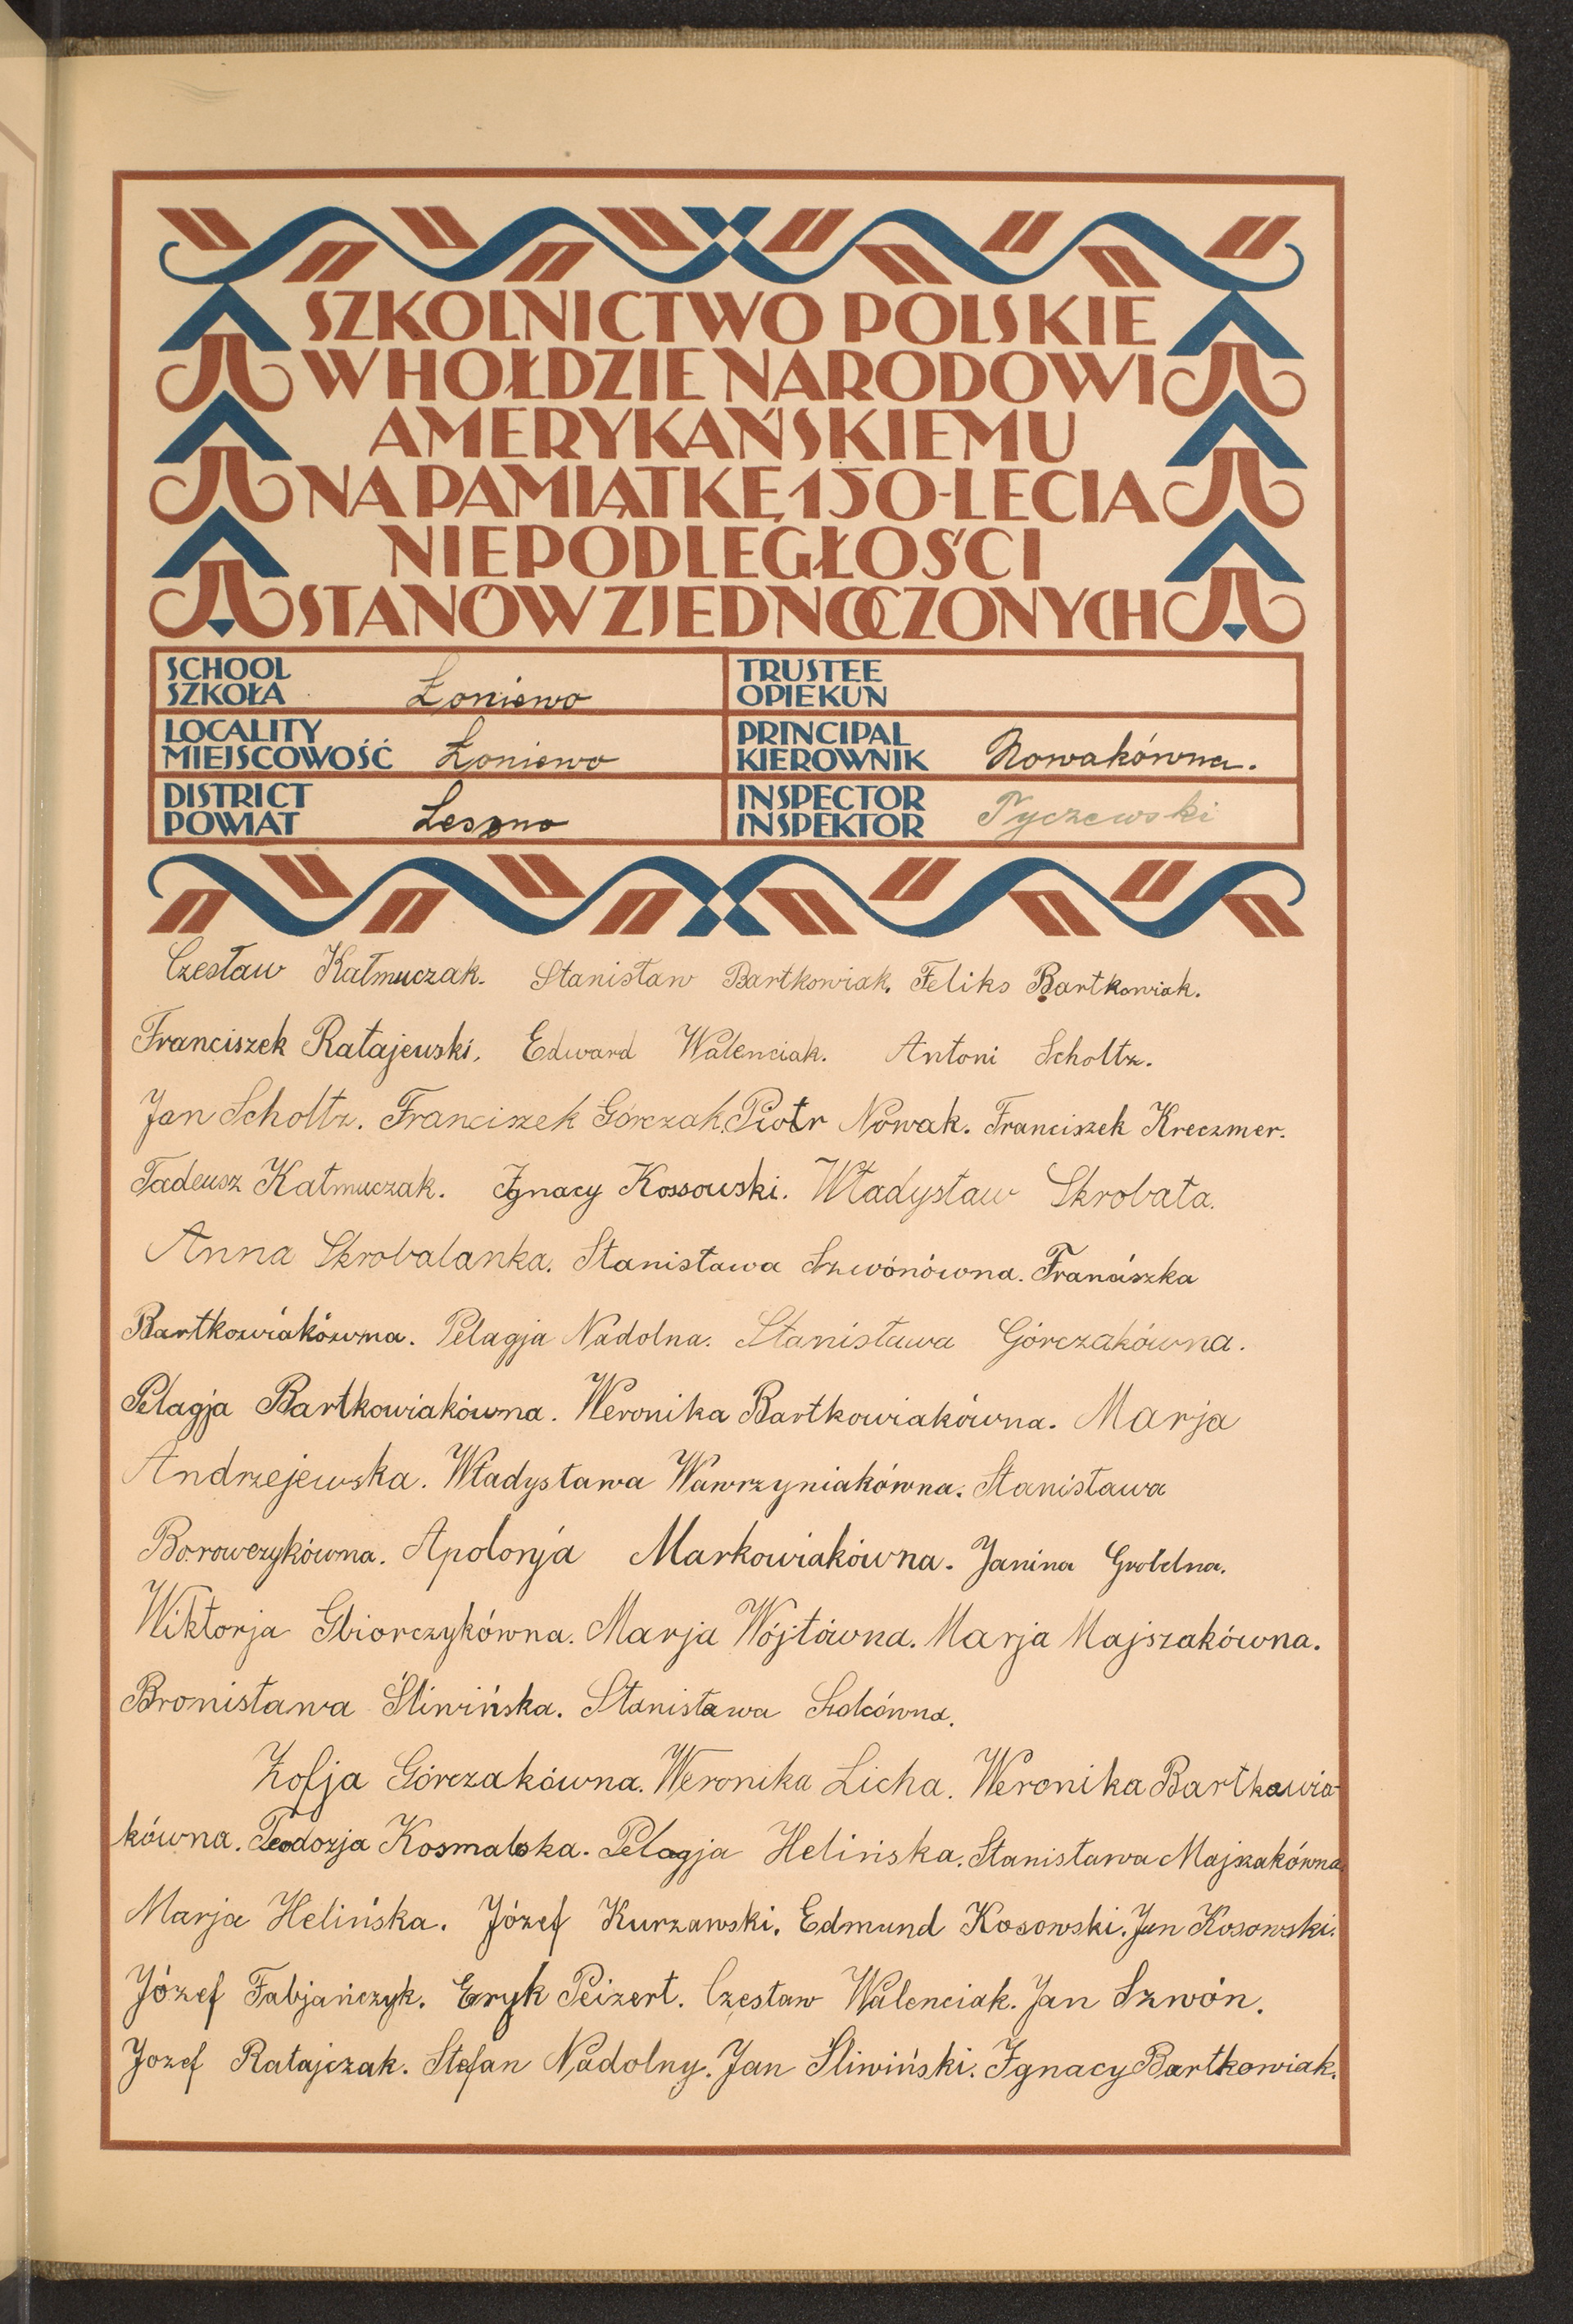 SZKOLNICTWO POLSKIE
W HOŁDZIE NARODOWI
AMERYKAŃSKIEMU
NA PAMIĄTKĘ 150-LECIA
NIEPODLEGŁOŚCI
STANÓW ZJEDNOCZONYCH
SCHOOL
SZKOŁA Łoniewo
TRUSTEE
OPIEKUN
LOCALITY
MIEJSCOWOŚĆ Łoniewo
PRINCIPAL
KIEROWNIK Nowakówna.
DISTRICT
POWIAT Leszno
INSPECTOR
INSPEKTOR Tyczewski
Czesław Kałmuczak. Stanisław Bartkowiak. Feliks Bartkowiak.
Franciszek Ratajewski. Edward Walenciak. Antoni Scholtz.
Jan Scholtz. Franciszek Górczak. Piotr Nowak. Franciszek Kreczmer.
Tadeusz Kałmuczak. Ignacy Kossowski. Władysław Skrobała.
Anna Skrobalanka. Stanisława Szwónówna. Franciszka
Bartkowiakówna. Pelagja Nadolna. Stanisława Górczakówna.
Pelagja Bartkowiakówna. Weronika Bartkowiakówna. Marja
Andrzejewska. Władysława Wawrzyniakówna. Stanisława
Borowczykówna. Apolonja Markowiakówna. Janina Grobelna.
Wiktorja Gbiorczykówna. Marja Wójtówna. Marja Majszakówna.
Bronisława Śliwińska. Stanisława
Zofja Górczakówna. Weronika Licha. Weronika Bartkowia
kówna. Teodozja Kosmalska. Pelagja Helińska. Stanisława Majszakówna
Marja Helińska. Józef Kurzawski. Edmund Kosowski. Jan Kosowski.
Józef Fabjańczyk. Eryk Peizert. Czesław Walenciak. Jan Szwón.
Jozef Ratajczak. Stefan Nadolny. Jan Sliwiński. Ignacy Bartkowiak.